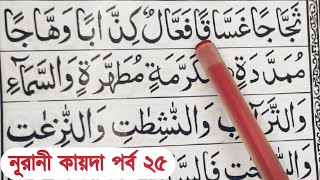 ثَجَّاجًا غَسَّاقًا فَعَّالٌ كِذَّابًا وَهَّاجًا
مُمَدَّدَةٍ مُكَرَّمَةٍ مُطَهَّرَةٍ وَالسَّمَآءِ
وَالتَّرَآئِبِ وَالنّٰشِطٰتِ وَالنّٰزِعٰتِ
নূরানী কায়দা পর্ব ২৫